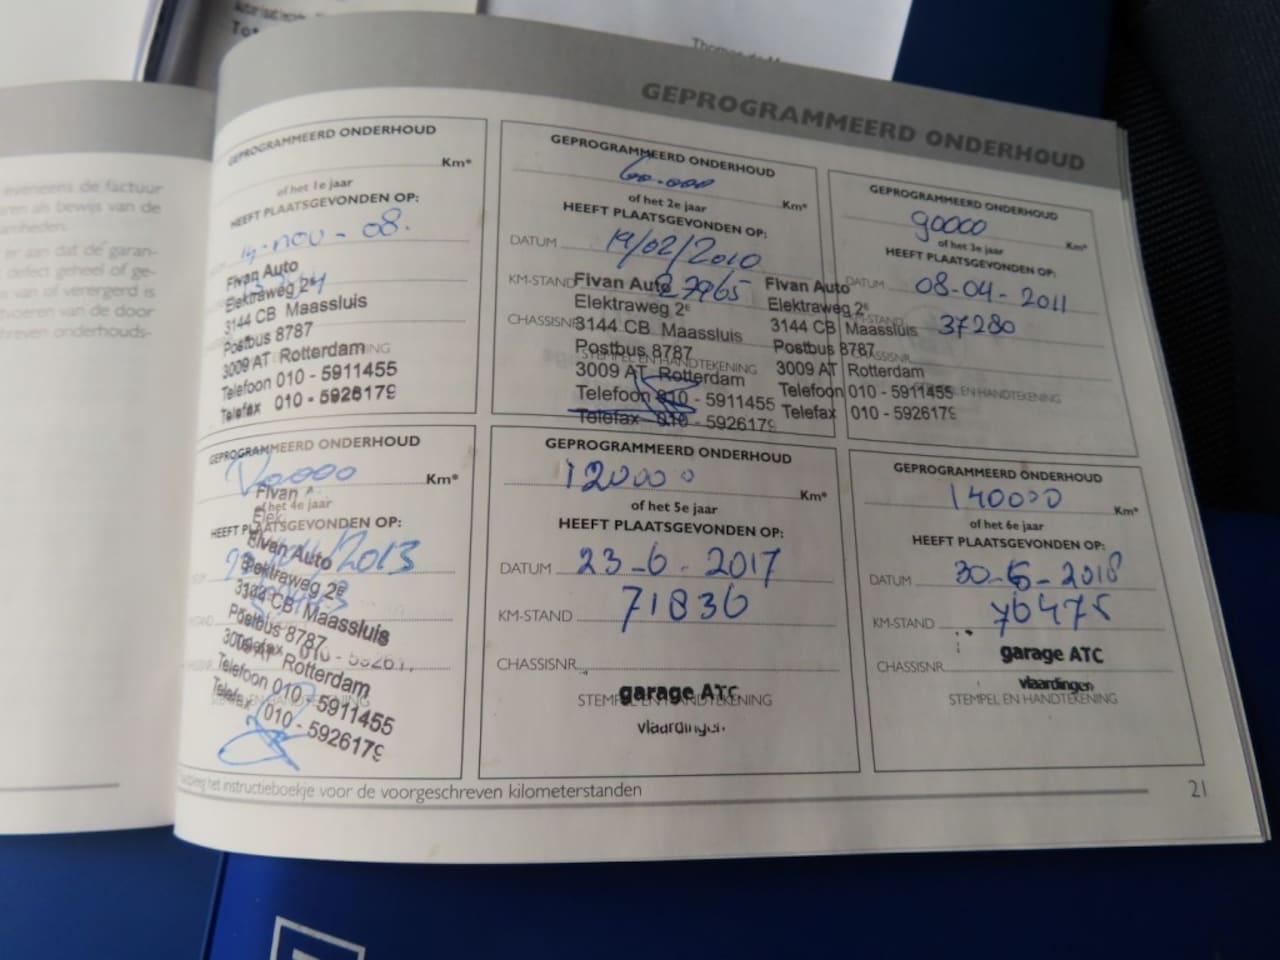 Tot
Thomas de
eveneens de factuur
ren als bewijs van de
amheden.
er aan dat de garan-
defect geheel of ge-
van of verergerd is
tvoeren van de door
hreven onderhouds-
GEPROGRAMMEERD ONDERHOUD
GEPROGRAMMEERD ONDERHOUD
Km*
of het 1e jaar
HEEFT PLAATSGEVONDEN OP:
14-nov-08.
Fivan Auto
Elektraweg 2e
3144 CB Maassluis
Postbus 8787
3009 AT Rotterdam
Telefoon 010 - 5911455
Telefax 010 - 5926179
GEPROGRAMMEERD ONDERHOUD
60.000
Km*
of het 2e jaar
HEEFT PLAATSGEVONDEN OP:
DATUM 19/02/2010
KM-STAND 27965
Fivan Auto
Elektraweg 2e
CHASSISNR
3144 CB Maassluis
Postbus 8787
STEMPEL EN HANDTEKENING
3009 AT Rotterdam
Telefoon 010 - 5911455
Telefax 010 - 5926179
GEPROGRAMMEERD ONDERHOUD
90000
Km*
of het 3e jaar
HEEFT PLAATSGEVONDEN OP:
DATUM 08-04-2011
KM-STAND 37280
Fivan Auto
Elektraweg 2e
3144 CB Maassluis
Postbus 8787
CHASSISNR.
3009 AT Rotterdam
STEMPEL EN HANDTEKENING
Telefoon 010 - 5911455
Telefax 010 - 5926179
GEPROGRAMMEERD ONDERHOUD
Km*
Fivan
of het 4e jaar
HEEFT PLAATSGEVONDEN OP:
2013
Fivan Auto
Elektraweg 2e
3144 CB Maassluis
Postbus 8787
3009 AT Rotterdam
Telefoon 010 - 5911455
Telefax 010 - 5926179
GEPROGRAMMEERD ONDERHOUD
120000
Km*
of het 5e jaar
HEEFT PLAATSGEVONDEN OP:
DATUM 23-6-2017
KM-STAND 71836
CHASSISNR.
garage ATC
STEMPEL EN HANDTEKENING
vlaardingen
GEPROGRAMMEERD ONDERHOUD
140000
Km*
of het 6e jaar
HEEFT PLAATSGEVONDEN OP:
DATUM 30-6-2018
KM-STAND 76475
garage ATC
CHASSISNR.
vlaardingen
STEMPEL EN HANDTEKENING
het instructieboekje voor de voorgeschreven kilometerstanden
21